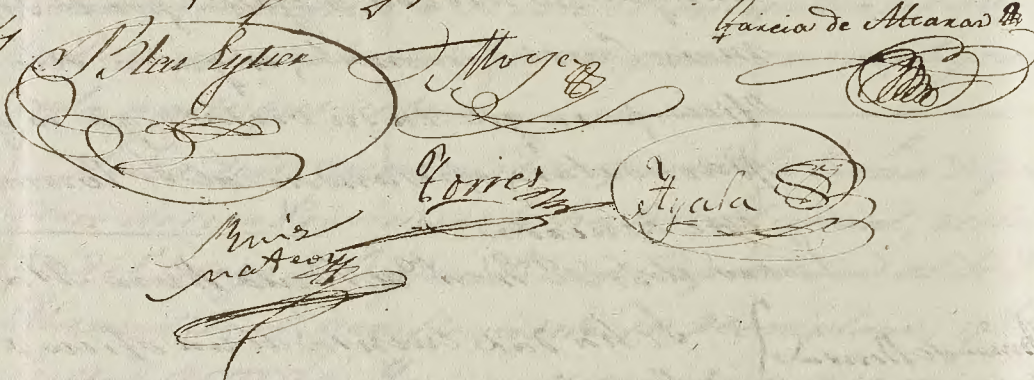 Garcia de Alcaraz
Blas Eytier
Moya
Torres
Ayala
Ruiz
mateos